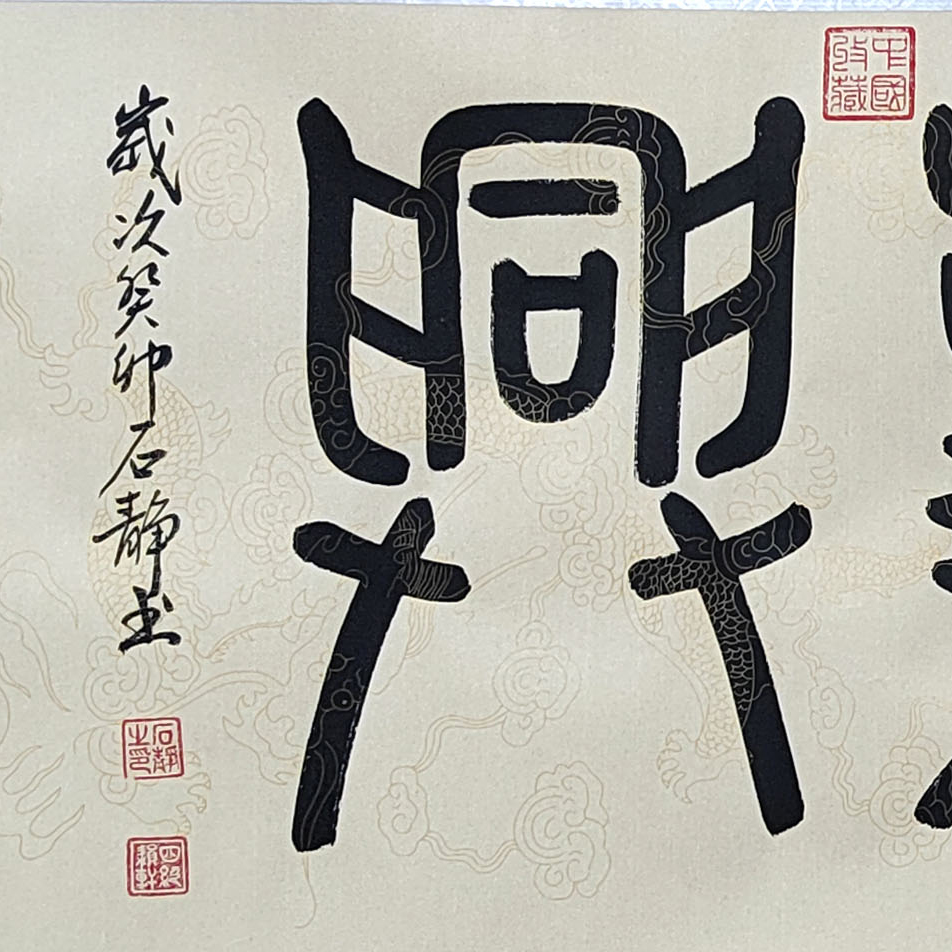 中國
收藏
興
歲次癸卯石靜書
石靜
之印